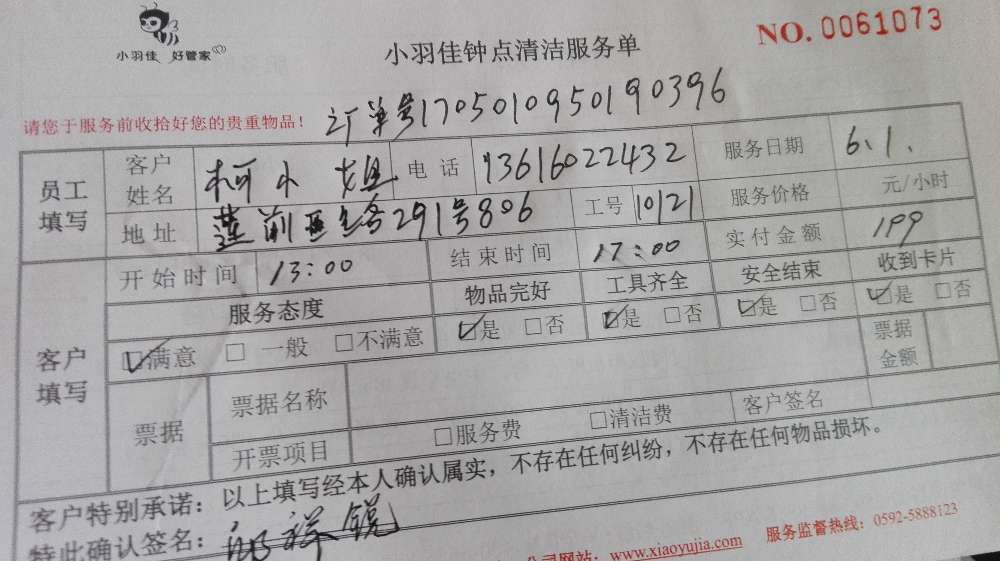 小羽佳 好管家
小羽佳钟点清洁服务单
NO. 0061073
请您于服务前收拾好您的贵重物品! 订单号170501095019 0396
员工填写 客户姓名 柯小姐 电话 13616022432 服务日期 6.1.
地址 莲前 291号806 工号 10121 服务价格 元/小时
客户填写 开始时间 13:00 结束时间 17:00 实付金额 199
服务态度 物品完好 工具齐全 安全结束 收到卡片
☑满意 □一般 □不满意 ☑是 □否 ☑是 □否 ☑是 □否 ☑是 □否
票据 票据名称 票据金额
开票项目 □服务费 □清洁费 客户签名
客户特别承诺:以上填写经本人确认属实,不存在任何纠纷,不存在任何物品损坏。
特此确认签名:
公司网站:www.xiaoyujia.com 服务监督热线:0592-5888123